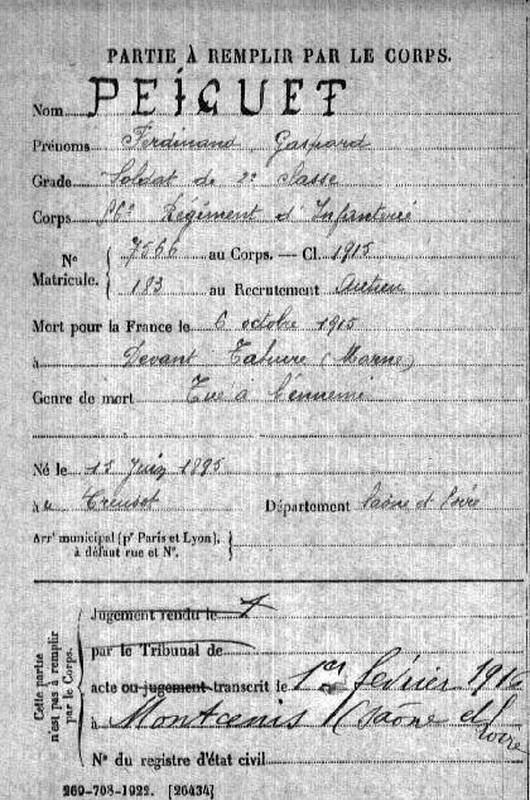 PARTIE À REMPLIR PAR LE CORPS.
Nom PEIGUET
Prénoms Ferdinand, Gaspard
Grade Soldat de 2e Classe
Corps Régiment d'Infanterie
No Matricule. 7566 au Corps. — Cl. 1915
183 au Recrutement Autun
Mort pour la France le 6 octobre 1915
à Devant Tahure (Marne)
Genre de mort Tué à l'ennemi
Né le 15 Juin 1895
à u Creusot Département Saône et Loire
Arrt municipal (pr Paris et Lyon),
à défaut rue et No.
Cette partie n'est pas à remplir par le Corps.
Jugement rendu le
par le Tribunal de
acte ou jugement transcrit le 1er février 1916
à Montcenis (Saône et Loire
No du registre d'état civil
269-708-1922. [26434]